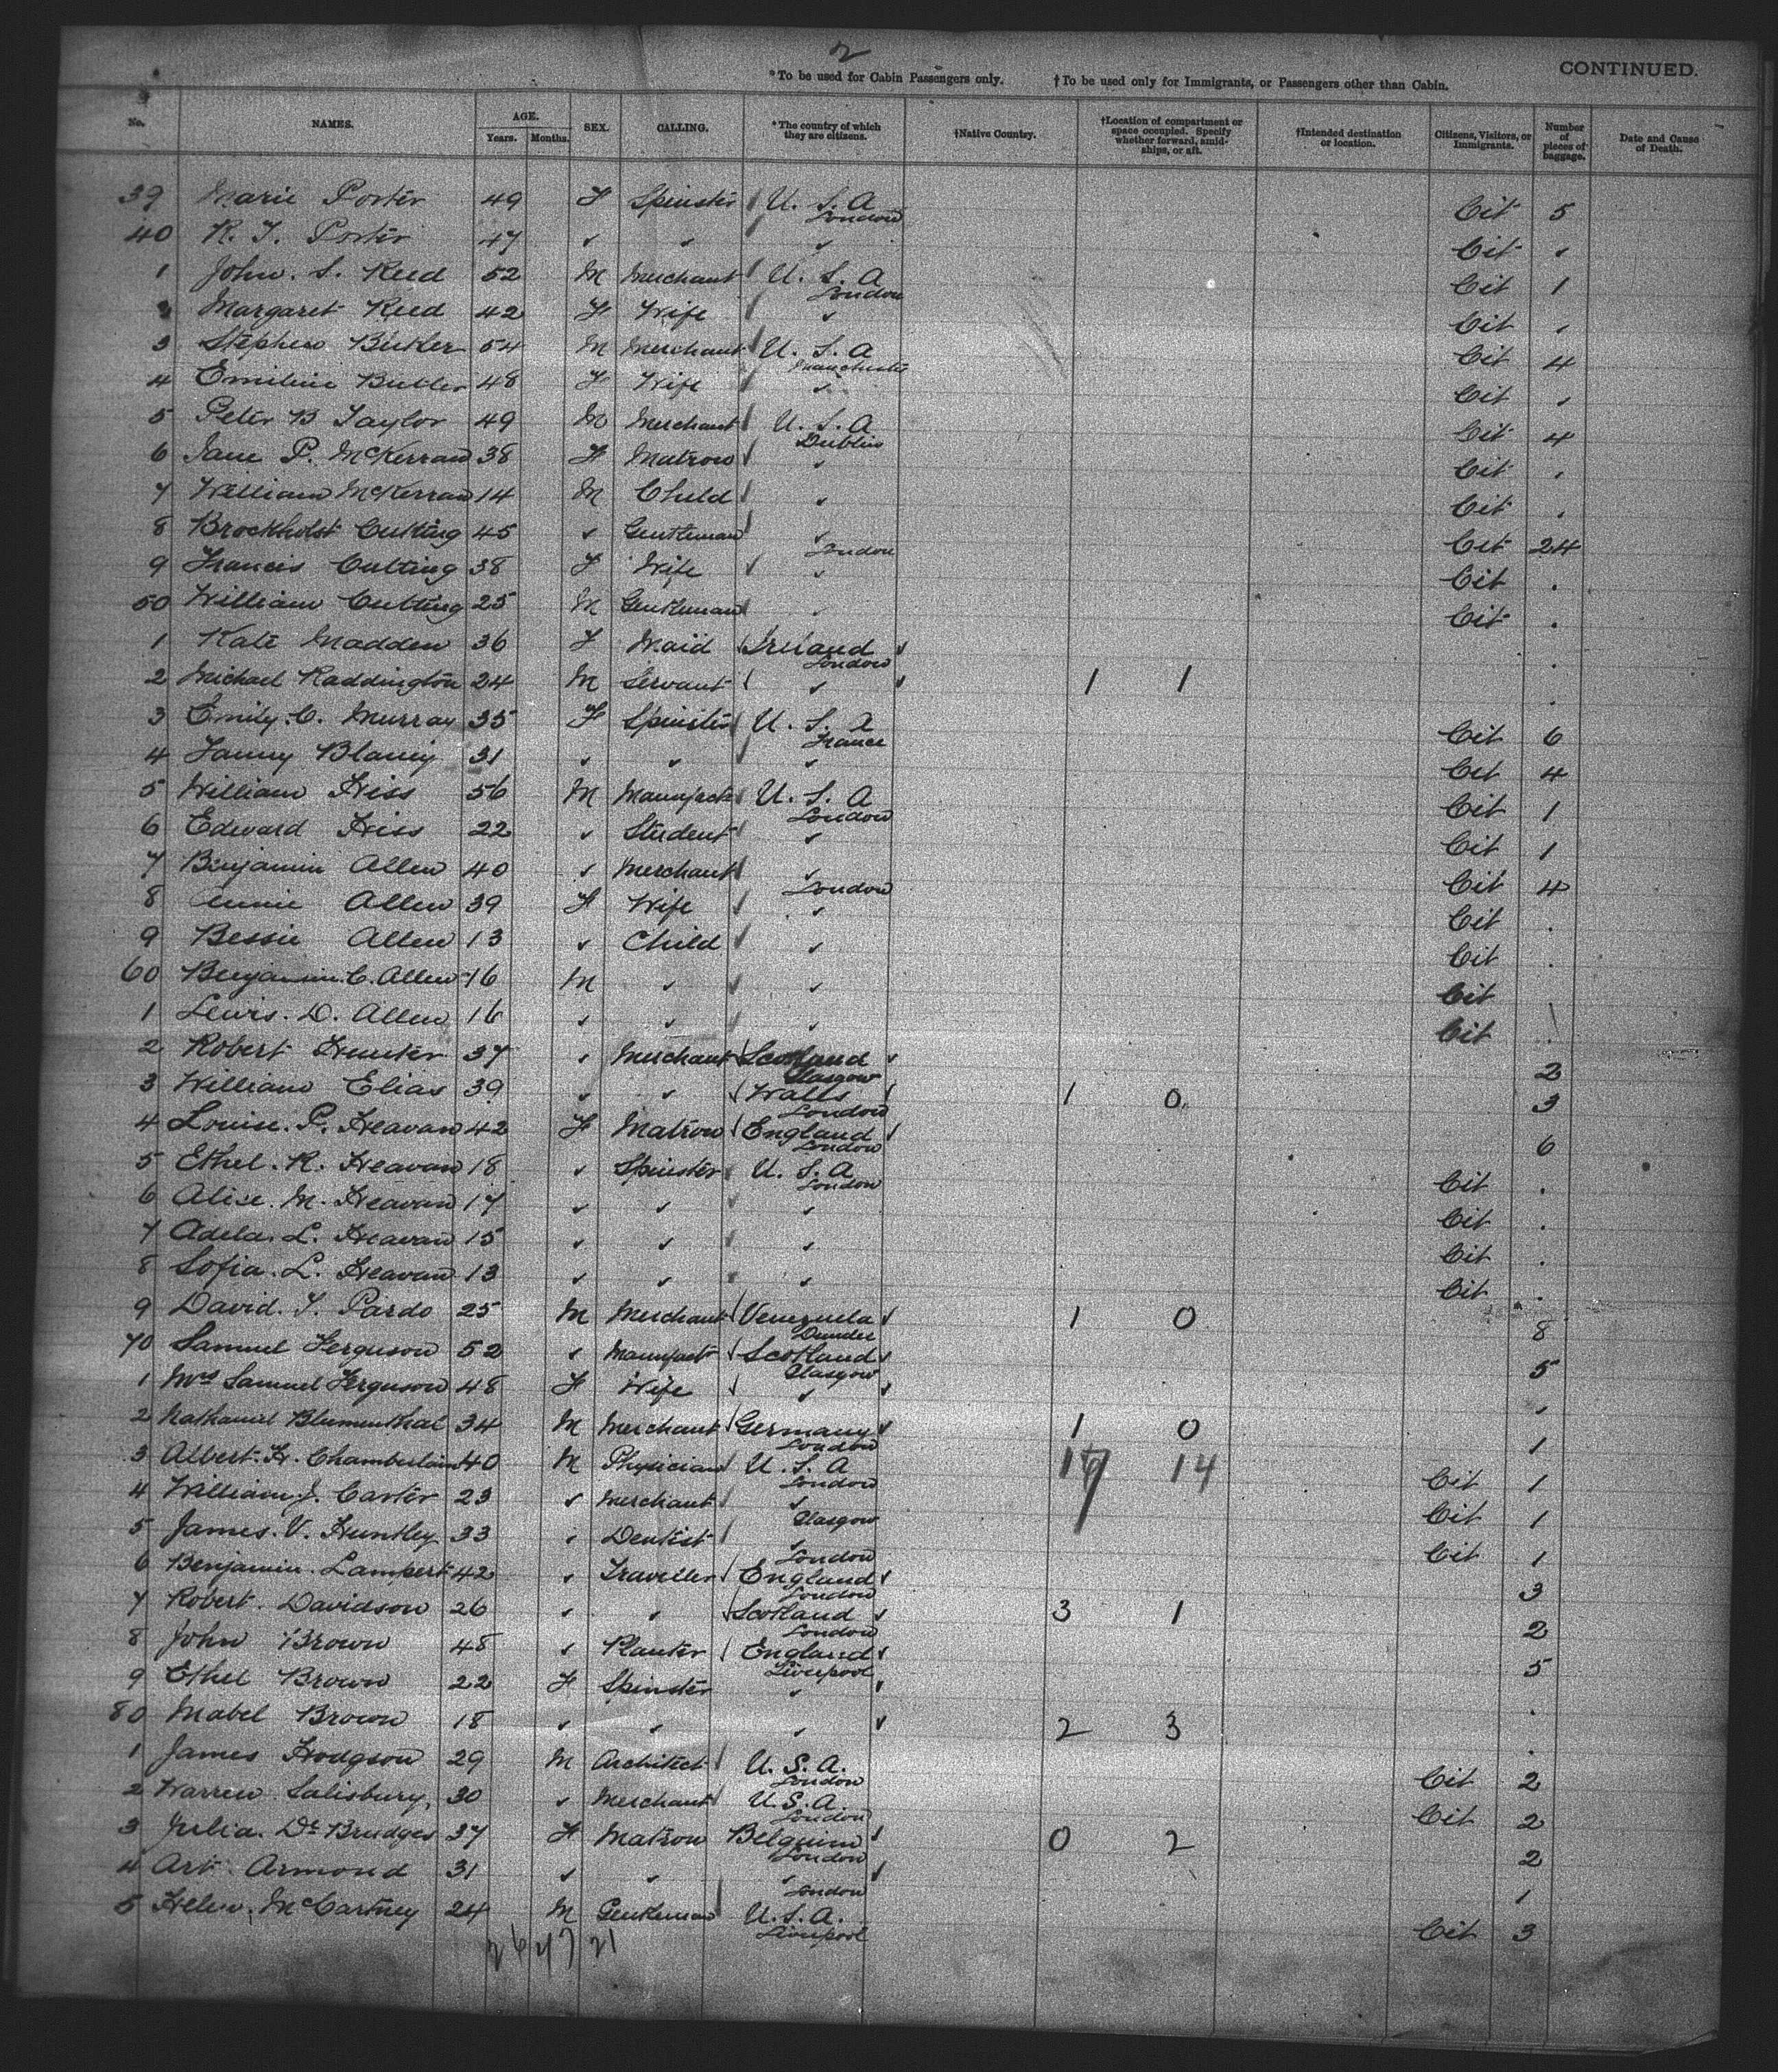 2
*To be used for Cabin Passengers only. †To be used only for Immigrants, or Passengers other than Cabin. CONTINUED.
No. NAMES. AGE. Years. Months. SEX. CALLING. *The country of which they are citizens. †Native Country. †Location of compartment or space occupied. Specify whether forward, amidships, or aft. †Intended destination or location. Citizens, Visitors, or Immigrants. Number of pieces of baggage. Date and Cause of Death.
39 Marie Porter 49 F Spinster U. S. A London Cit 5
40 R. T. Porter 47 " " " Cit "
1 John. S. Reed 52 M Merchant U. S. A London Cit 1
2 Margaret Reed 42 F Wife " Cit "
3 Stephen Butler 54 M Merchant U. S. A Manchester Cit 4
4 Emiline Butler 48 F Wife " Cit "
5 Peter B Taylor 49 M Merchant U. S. A Dublin Cit 4
6 Jane P. McKerran 38 F Matron " Cit "
7 William McKerran 14 M Child " Cit "
8 Brockholst Cutting 45 " Gentleman " London Cit 24
9 Francis Cutting 38 F Wife " Cit "
50 William Cutting 25 M Gentleman " Cit "
1 Kate Madden 36 F Maid Ireland London "
2 Michael Raddington 24 M Servant " 1 1 "
3 Emily. C. Murray 35 F Spinster U. S. A France Cit 6
4 Fanny 31 " " " Cit 4
5 William Hiss 56 M Manufactr U. S. A London Cit 1
6 Edward Hiss 22 " Student " Cit 1
7 Benjamin Allen 40 " Merchant " London Cit 4
8 Annie Allen 39 F Wife " Cit "
9 Bessie Allen 13 " Child " Cit "
60 Benjamin. C. Allen 16 M " " Cit
1 Lewis. D. Allen 16 " " " Cit "
2 Robert Hunter 37 " Merchant Scotland Glasgow 2
3 William Elias 39 " " Walls London 1 0 3
4 Louise. P. Heavan 42 F Matron England London 6
5 Ethel. R. Heavan 18 " Spinster U. S. A London Cit "
6 Alice. M. Heavan 17 " " " Cit "
7 Adela. L. Heavan 15 " " " Cit "
8 Sofia. L. Heavan 13 " " " Cit "
9 David. T. Pardo 25 M Merchant Venezuela Dundee 1 0 8
70 Samuel Ferguson 52 " Manufactr Scotland Glasgow 5
1 Mrs Samuel Ferguson 48 F Wife " "
2 Nathaniel Blumenthal 34 M Merchant Germany London 1 0 1
3 Albert. H. Chamberlain 40 M Physician U. S. A London 17 14 Cit 1
4 William J. Carter 23 " Merchant " Glasgow Cit 1
5 James. V. Huntley 33 " Dentist " London Cit 1
6 Benjamin. Lambert 42 " Traveller England London 3
7 Robert. Davidson 26 " " Scotland London 3 1 2
8 John Brown 48 " Planter England Liverpool 5
9 Ethel Brown 22 F Spinster " "
80 Mabel Brown 18 " " " 2 3 "
1 James Hodgson 29 M Architect U. S. A. London Cit 2
2 Warren Salisbury, 30 " Merchant U. S. A. London Cit 2
3 Julia. De Brudges 37 F Matron Belgium London 0 2 2
4 Art Armond 31 " " " London 1
5 Helen. McCartney 24 M Gentleman U. S. A. Liverpool Cit 3
26 47 21